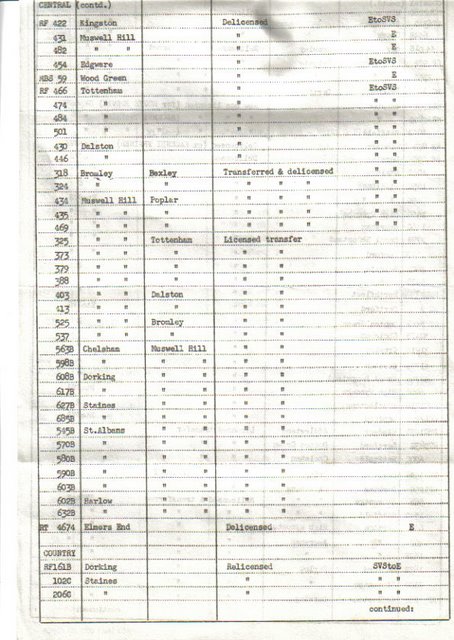 CENTRAL (contd.)
RF 422 Kingston Delicensed EtoSVS
431 Muswell Hill " E
482 " " " E
454 Edgware " EtoSVS
MBS 59 Wood Green " E
RF 466 Tottenham " EtoSVS
474 " " " "
484 " " " "
501 " " " "
430 Dalston " " "
446 " " " "
318 Bromley Bexley Transferred & delicensed " "
324 " " " " " " "
434 Muswell Hill Poplar " " " " "
435 " " " " " " " "
469 " " " " " " " "
325 " " Tottenham Licensed transfer
373 " " " " "
379 " " " " "
388 " " " " "
403 " " Dalston " "
413 " " " " "
525 " " Bromley " "
537 " " " " "
563B Chelsham Muswell Hill " "
598B " " " " "
608B Dorking " " " "
617B " " " " "
627B Staines " " " "
685B " " " " "
545B St.Albans " " " "
570B " " " " "
580B " " " " "
590B " " " " "
603B " " " " "
602B Harlow " " " "
632B " " " " "
RT 4674 Elmers End Delicensed E
COUNTRY
RF161B Dorking Relicensed SVStoE
102C Staines " " "
206C " " " "
continued: